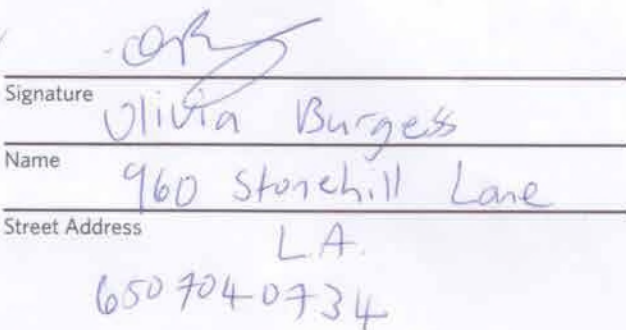 Signature
Olivia Burgess
Name
960 Stonehill Lane
Street Address
L.A.
6507040734